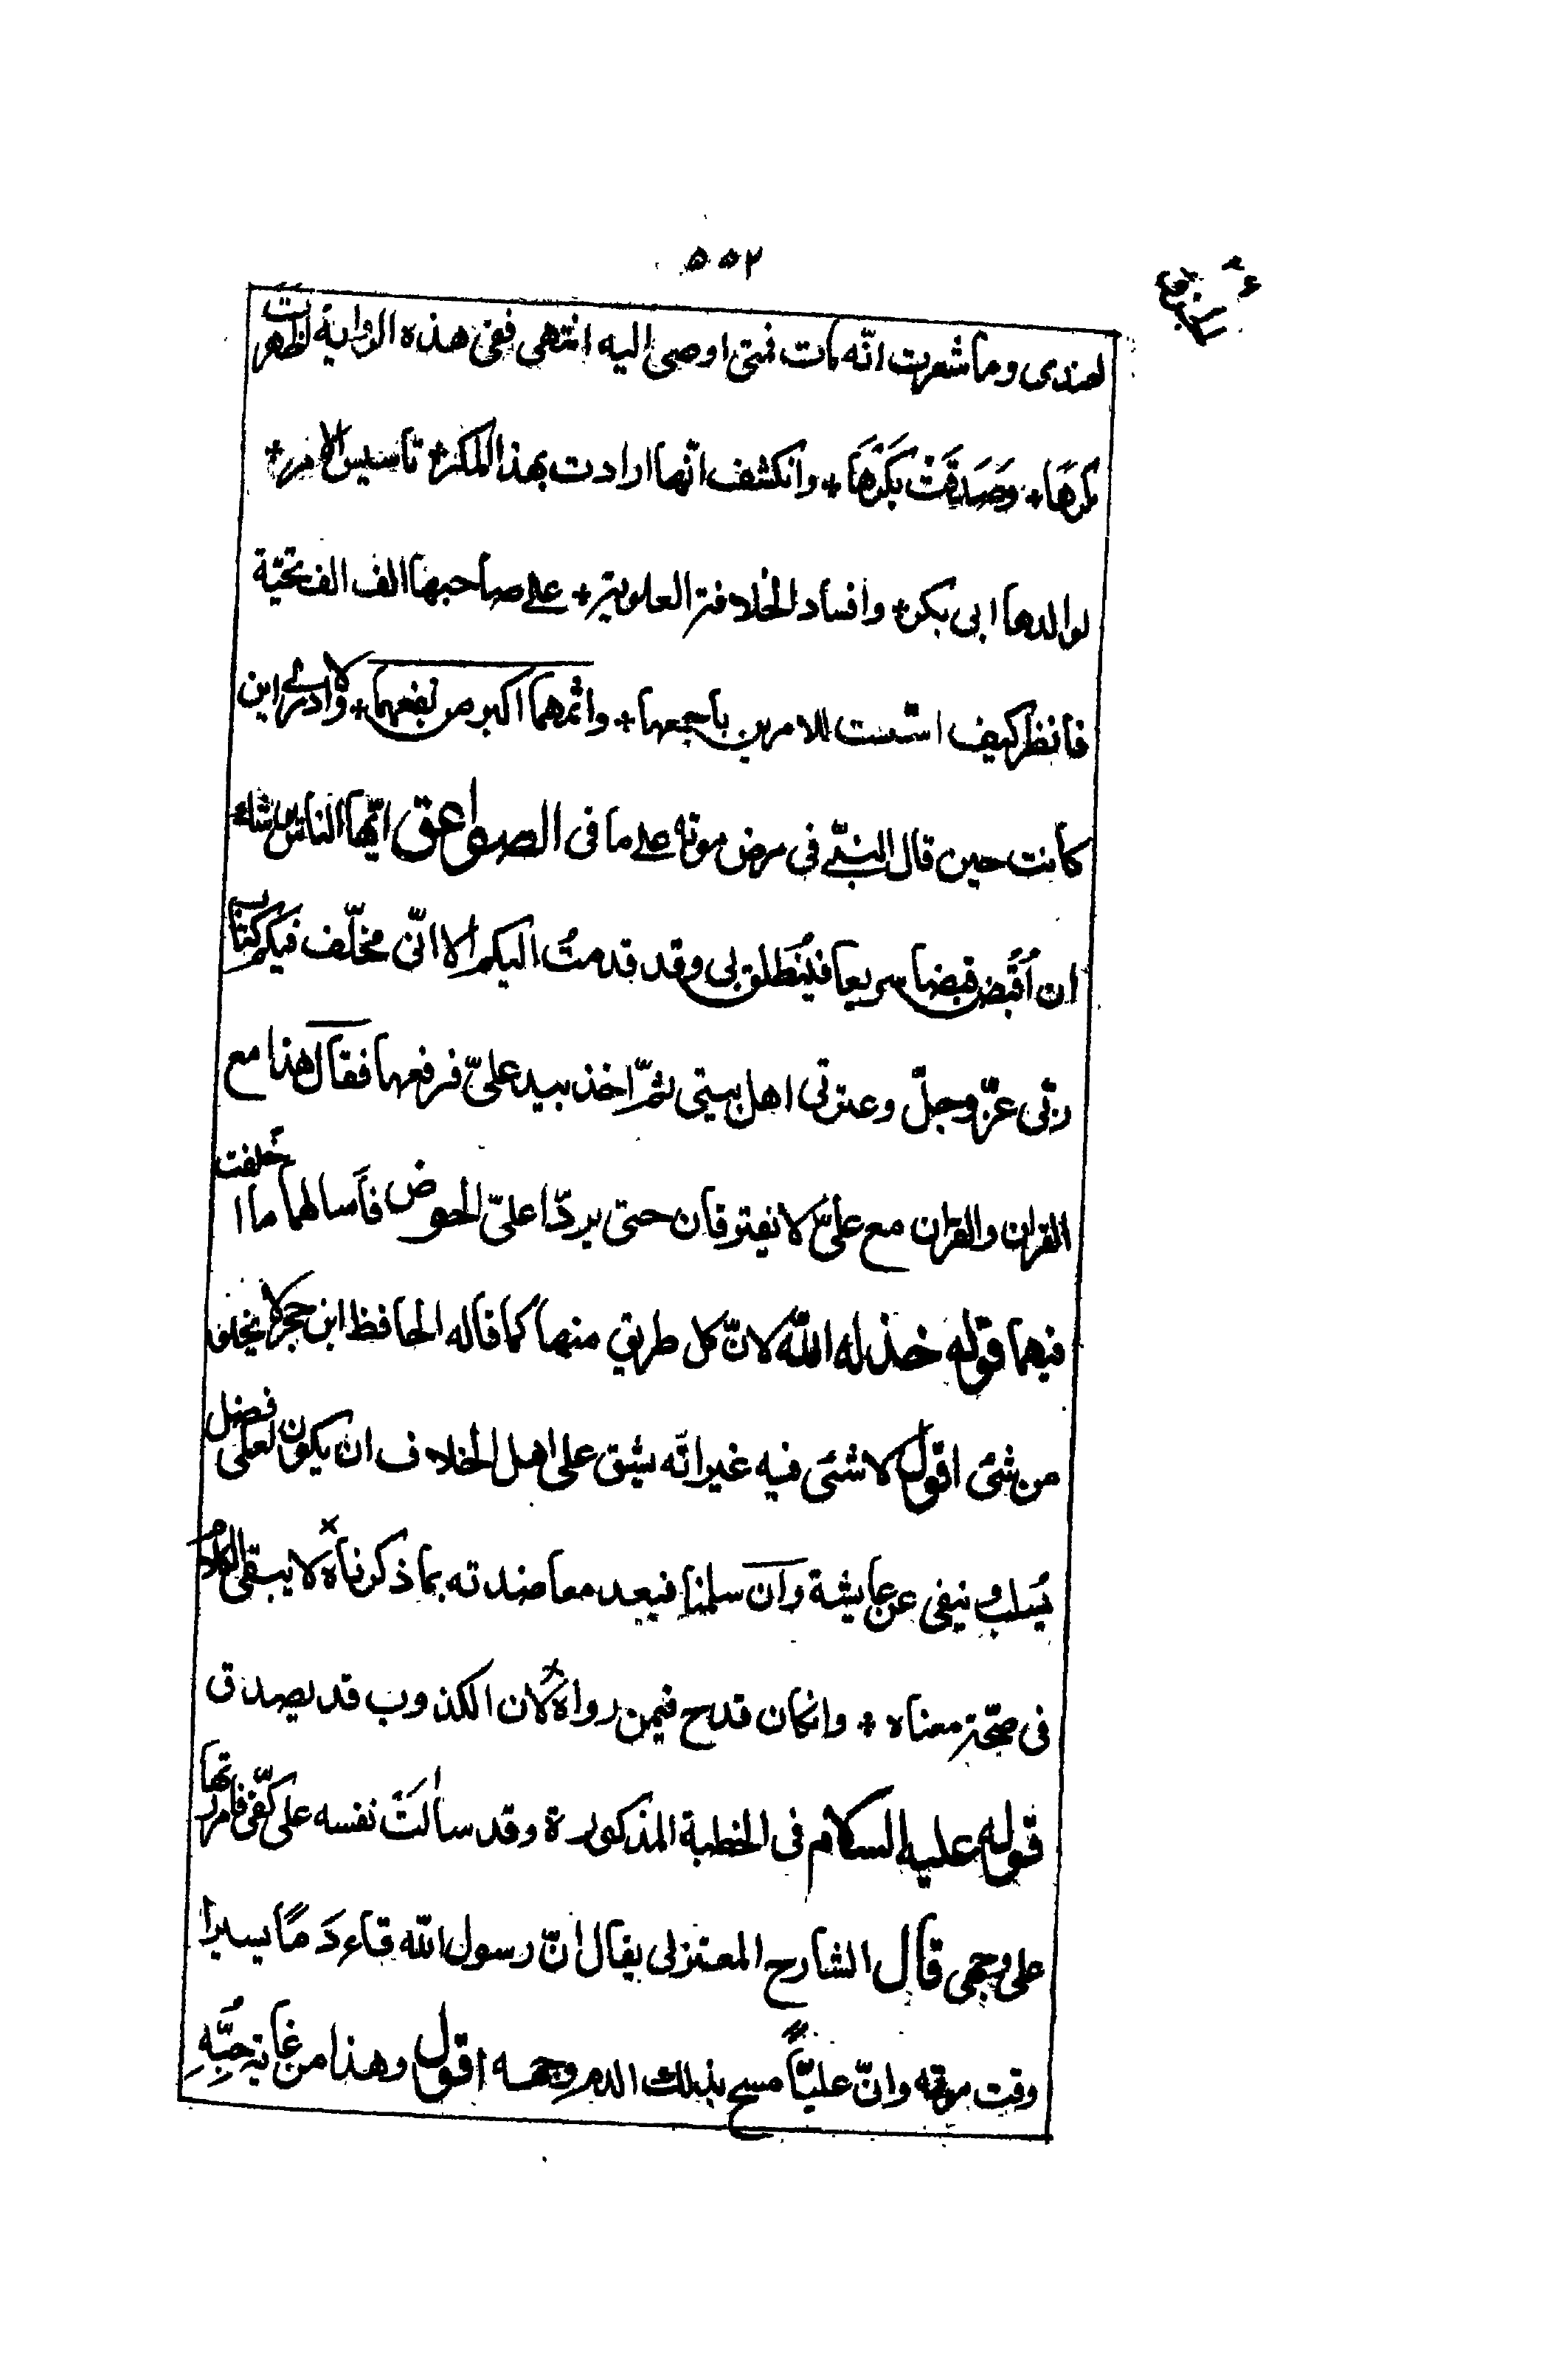 ٥٥٢
لعندى وما شعرت انّه مات فمتى اوصى اليه انتهى ففى هذه الرواية ظهرت
مكرها + وصدقت بكرها + وانكشف انّها ارادت بهذا المكر + تاسيس الامر +
لوالدها ابى بكر + وافساد الخلافة العلوية + على صاحبها الف الف تحيّة
فانظر كيف اسّست الامرين باجمعها + واثمهما اكبر من نفعهما + ولا ادرى اين
كانت حين قال النبىّ فى مرض موته على ما فى الصواعق ايّها الناس
ان اُقبَض قبضا سريعا فيُنطَلق بى وقد قدمتُ اليكم الا انّى مخلّف فيكم كتاب
ربّى عزّ وجلّ وعترتى اهل بيتى ثمّ اخذ بيد علىّ فرفعها فقال هذا مع
القران والقران مع علىّ لا يفترقان حتى يردّا علىّ الحوض فأسالهما ما اخلفت
فيهما قوله خذله الله لانّ كل طريق منها كما قاله الحافظ ابن حجر لا يخلو
من شئ اقول لا شئى فيه غير انّه يشق على اهل الخلاف ان يكون لعلى فضل
يُسلب وينفى عن عايشة وان سلمنا فبعد معاضدته بما ذكرناه لا يبقى الكلام
فى صحّة معناه + وان كان قدح فيمن رواه لان الكذوب قد يصدق
قوله عليه السلام فى الخطبة المذكورة وقد سالت نفسه على كفّى فامررتها
على وجهى قال الشارح المعتزلى يقال انّ رسول الله قاء دَمًا يسيرا
وقت موته وانّ عليّاً مسح بذلك الدم وجهه اقول وهذا من غاية حُبّهِ